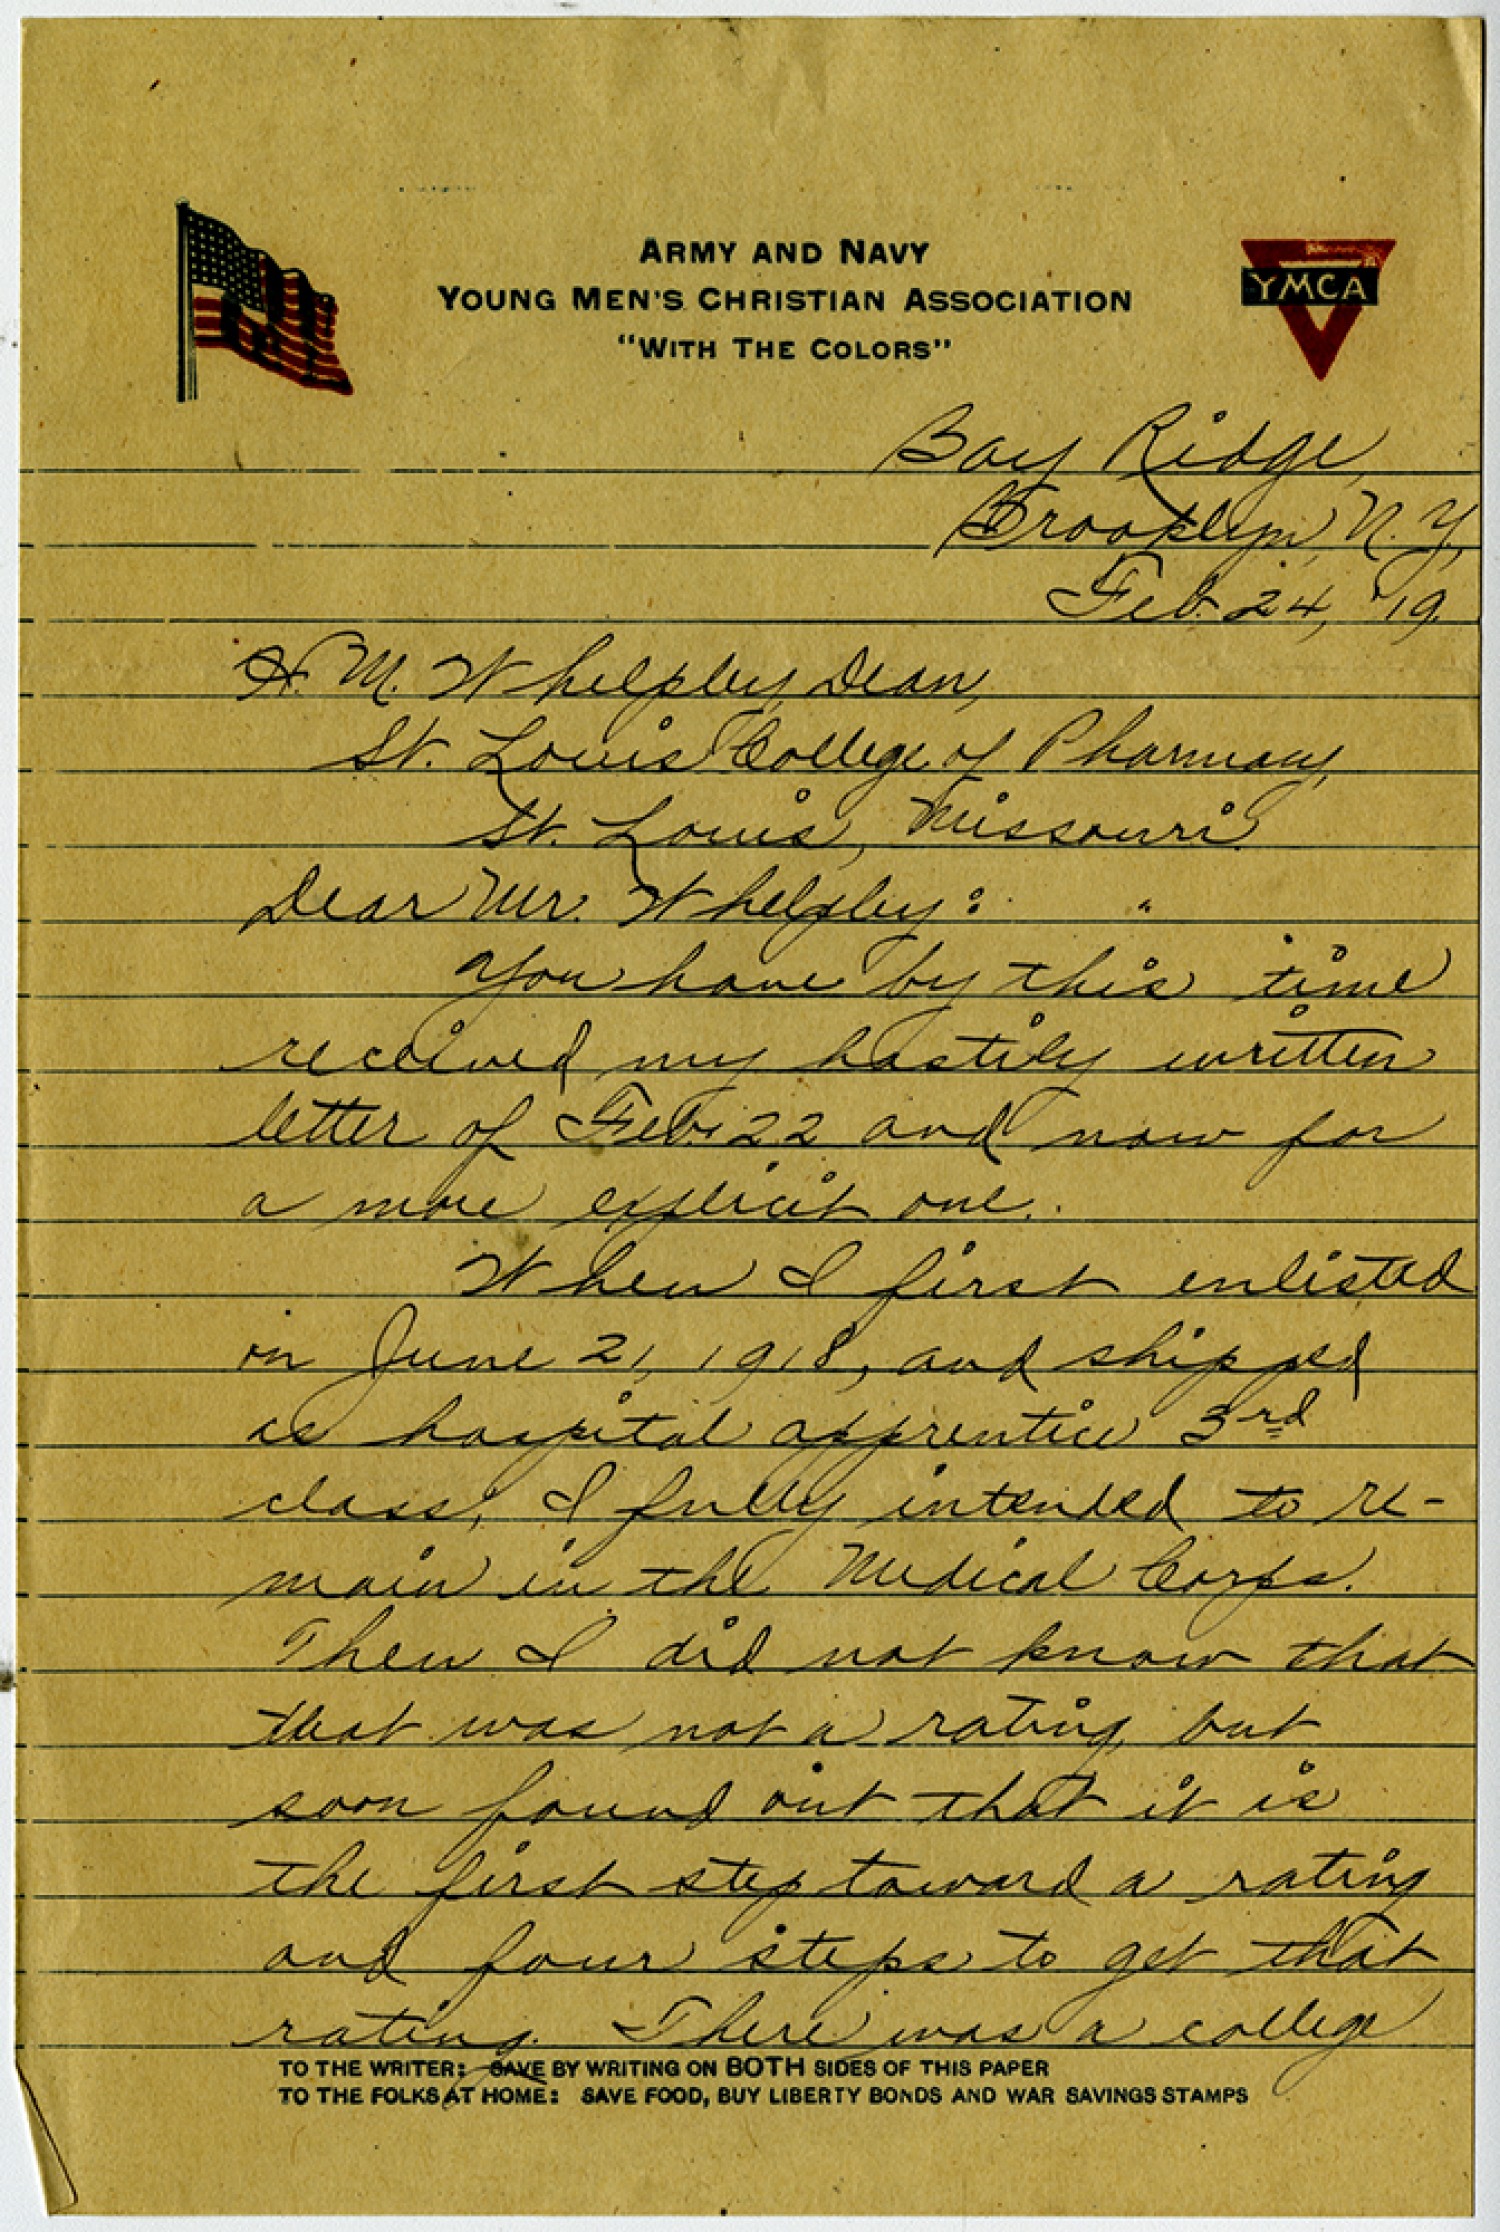 ARMY AND NAVY
YOUNG MEN'S CHRISTIAN ASSOCIATION
"WITH THE COLORS"
YMCA
Bay Ridge,
Brooklyn, N.Y.,
Feb. 24, '19.
H. M. Whelpley, Dean,
St. Louis College of Pharmacy,
St. Louis, Missouri.
Dear Mr. Whelpley:
You have by this time
received my hastily written
letter of Feb. 22 and now for
a more explicit one.
When I first enlisted
on June 21, 1918, and shipped
as hospital apprentice 3rd
class, I fully intended to re-
main in the Medical Corps.
Then I did not know that
that was not a rating, but
soon found out that it is
the first step toward a rating
and four steps to get that
rating. There was a college
TO THE WRITER: SAVE BY WRITING ON BOTH SIDES OF THIS PAPER
TO THE FOLKS AT HOME: SAVE FOOD, BUY LIBERTY BONDS AND WAR SAVINGS STAMPS